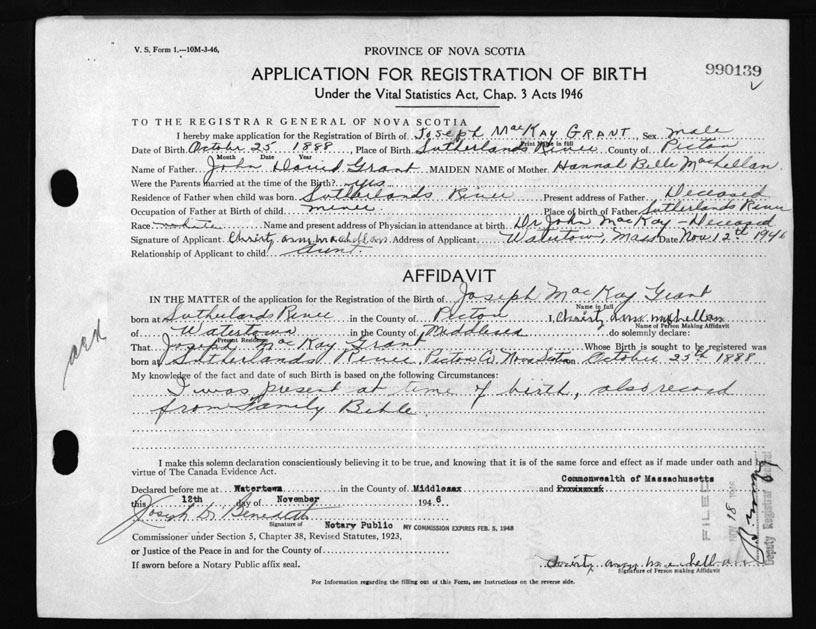 V. S. Form 1.—10M-3-46,
PROVINCE OF NOVA SCOTIA
990139
APPLICATION FOR REGISTRATION OF BIRTH
Under the Vital Statistics Act, Chap. 3 Acts 1946
TO THE REGISTRAR GENERAL OF NOVA SCOTIA
I hereby make application for the Registration of Birth of Joseph MacKay GRANT, Sex male
Print Name in full
Date of Birth October 25 1888, Place of Birth Sutherlands River County of Pictou
Month Date Year
Name of Father John David Grant MAIDEN NAME of Mother Hannah Belle MacLellan
Were the Parents married at the time of the Birth? yes
Residence of Father when child was born Sutherlands River Present address of Father Deceased
Occupation of Father at Birth of child miner Place of birth of Father Sutherlands River
Race white Name and present address of Physician in attendance at birth Dr John MacKay - Deceased
Signature of Applicant Christy Ann Address of Applicant Watertown, Mass Date Nov. 12th 1946
Relationship of Applicant to child Aunt.
AFFIDAVIT
IN THE MATTER of the application for the Registration of the Birth of Joseph MacKay Grant
Name in full
born at Sutherlands River in the County of Pictou I, Christy Ann McLellan
Name of Person Making Affidavit
of Watertown in the County of Middlesex do solemnly declare:
Present Residence
That Joseph MacKay Grant Whose Birth is sought to be registered was
born at Sutherlands River Pictou Co. Nova Scotia on October 25th 1888
My knowledge of the fact and date of such Birth is based on the following Circumstances:
I was present at time of birth, also record
from Family Bible.
ard
I make this solemn declaration conscientiously believing it to be true, and knowing that it is of the same force and effect as if made under oath and by
virtue of The Canada Evidence Act.
Commonwealth of Massachusetts
Declared before me at Watertown in the County of Middlesex and
this 12th day of November 1946
Joseph D. Benedetti
Signature of Notary Public MY COMMISSION EXPIRES FEB. 5, 1948
Commissioner under Section 5, Chapter 38, Revised Statutes, 1923,
or Justice of the Peace in and for the County of
If sworn before a Notary Public affix seal.
Christy Ann
Signature of Person Making Affidavit
For Information regarding the filling out of this Form, see Instructions on the reverse side.
FILED
NOV 18 1946
Deputy Registrar General